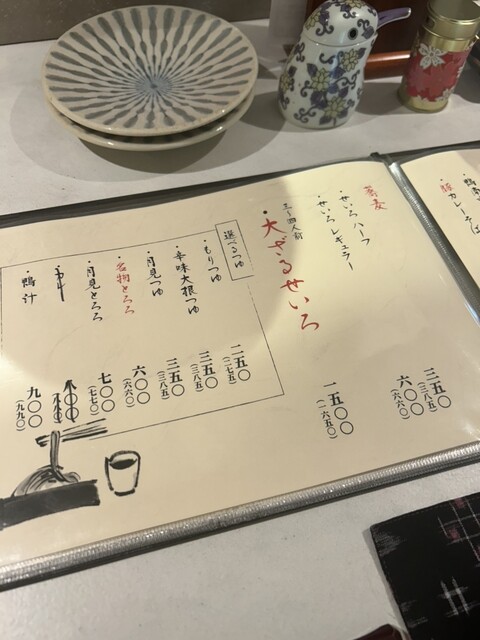 鴨南
豚カレーそば
蕎麦
・せいろ ハーフ 三五〇(三八五)
・せいろ レギュラー 六〇〇(六六〇)
三〜四人前
・大ざるせいろ 一五〇〇(一六五〇)
選べるつゆ
・もりつゆ 二五〇(二七五)
・辛味大根つゆ 三五〇(三八五)
・月見つゆ 三五〇(三八五)
・名物とろろ 六〇〇(六六〇)
・月見とろろ 七〇〇(七七〇)
・鴨汁 九〇〇(九九〇)